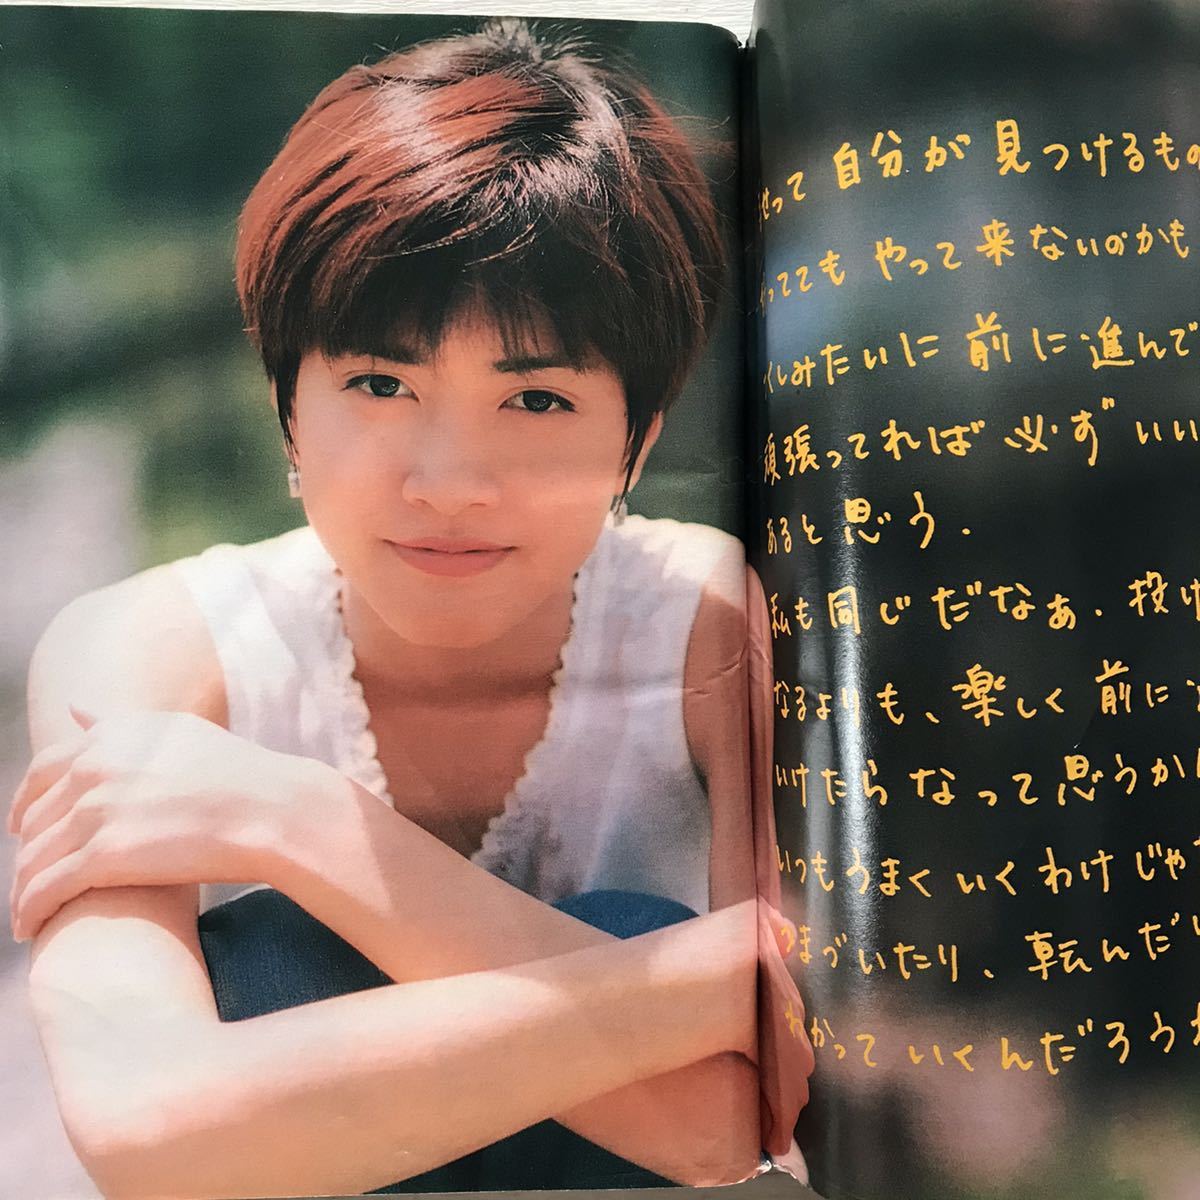 って 自分が 見つけるもの
ってても やって 来ないのかも
くしみたいに 前に進んで
頑張ってれば 必ず いい
あると 思う.
私も 同じ だなぁ. 投げ
なるよりも、楽しく 前に
いけたら なって 思うから
いつもうまく いく わけ じゃな
つまづいたり、転んだり
わかって いくんだろうね